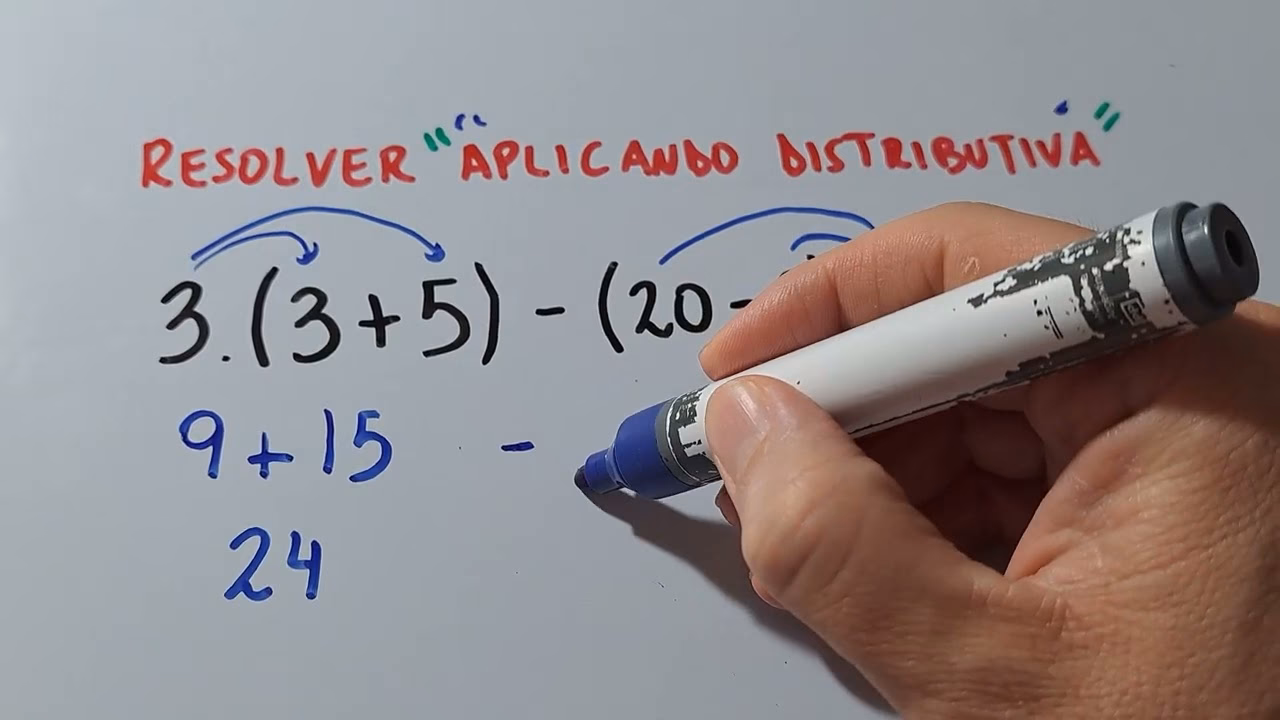 RESOLVER "APLICANDO DISTRIBUTIVA"
3.(3+5) - (20-
9 + 15 -
24